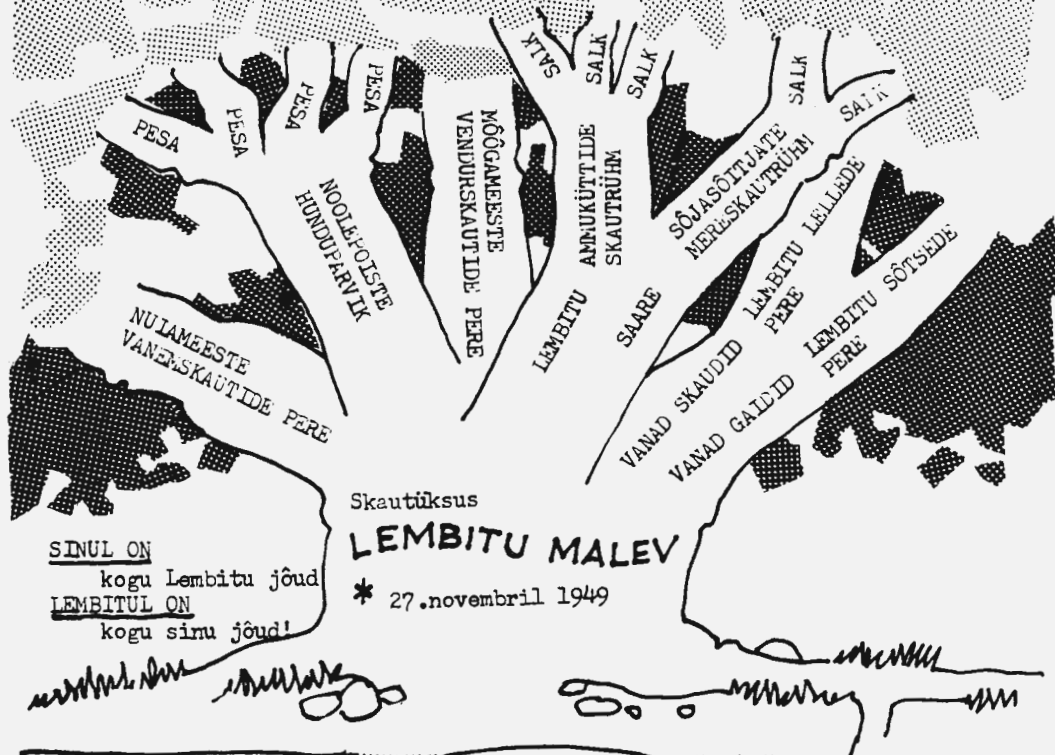 SALK
SALK
SALK
SALK
SALK
PESA
PESA
PESA
PESA
NOOLEPOISTE
HUNDUPARVIK
MÕÕGAMEESTE
VENDURSKAUTIDE PERE
LEMBITU AMMUKÜTTIDE
SKAUTRÜHM
SAARE SÕJASÕITJATE
MERESKAUTRÜHM
NUIAMEESTE
VANEMSKAUTIDE PERE
VANAD SKAUDID LEMBITU LELLEDE
PERE
VANAD GAIDID LEMBITU SÕTSEDE
PERE
Skautüksus
LEMBITU MALEV
* 27.novembril 1949
SINUL ON
kogu Lembitu jõud
LEMBITUL ON
kogu sinu jõud!